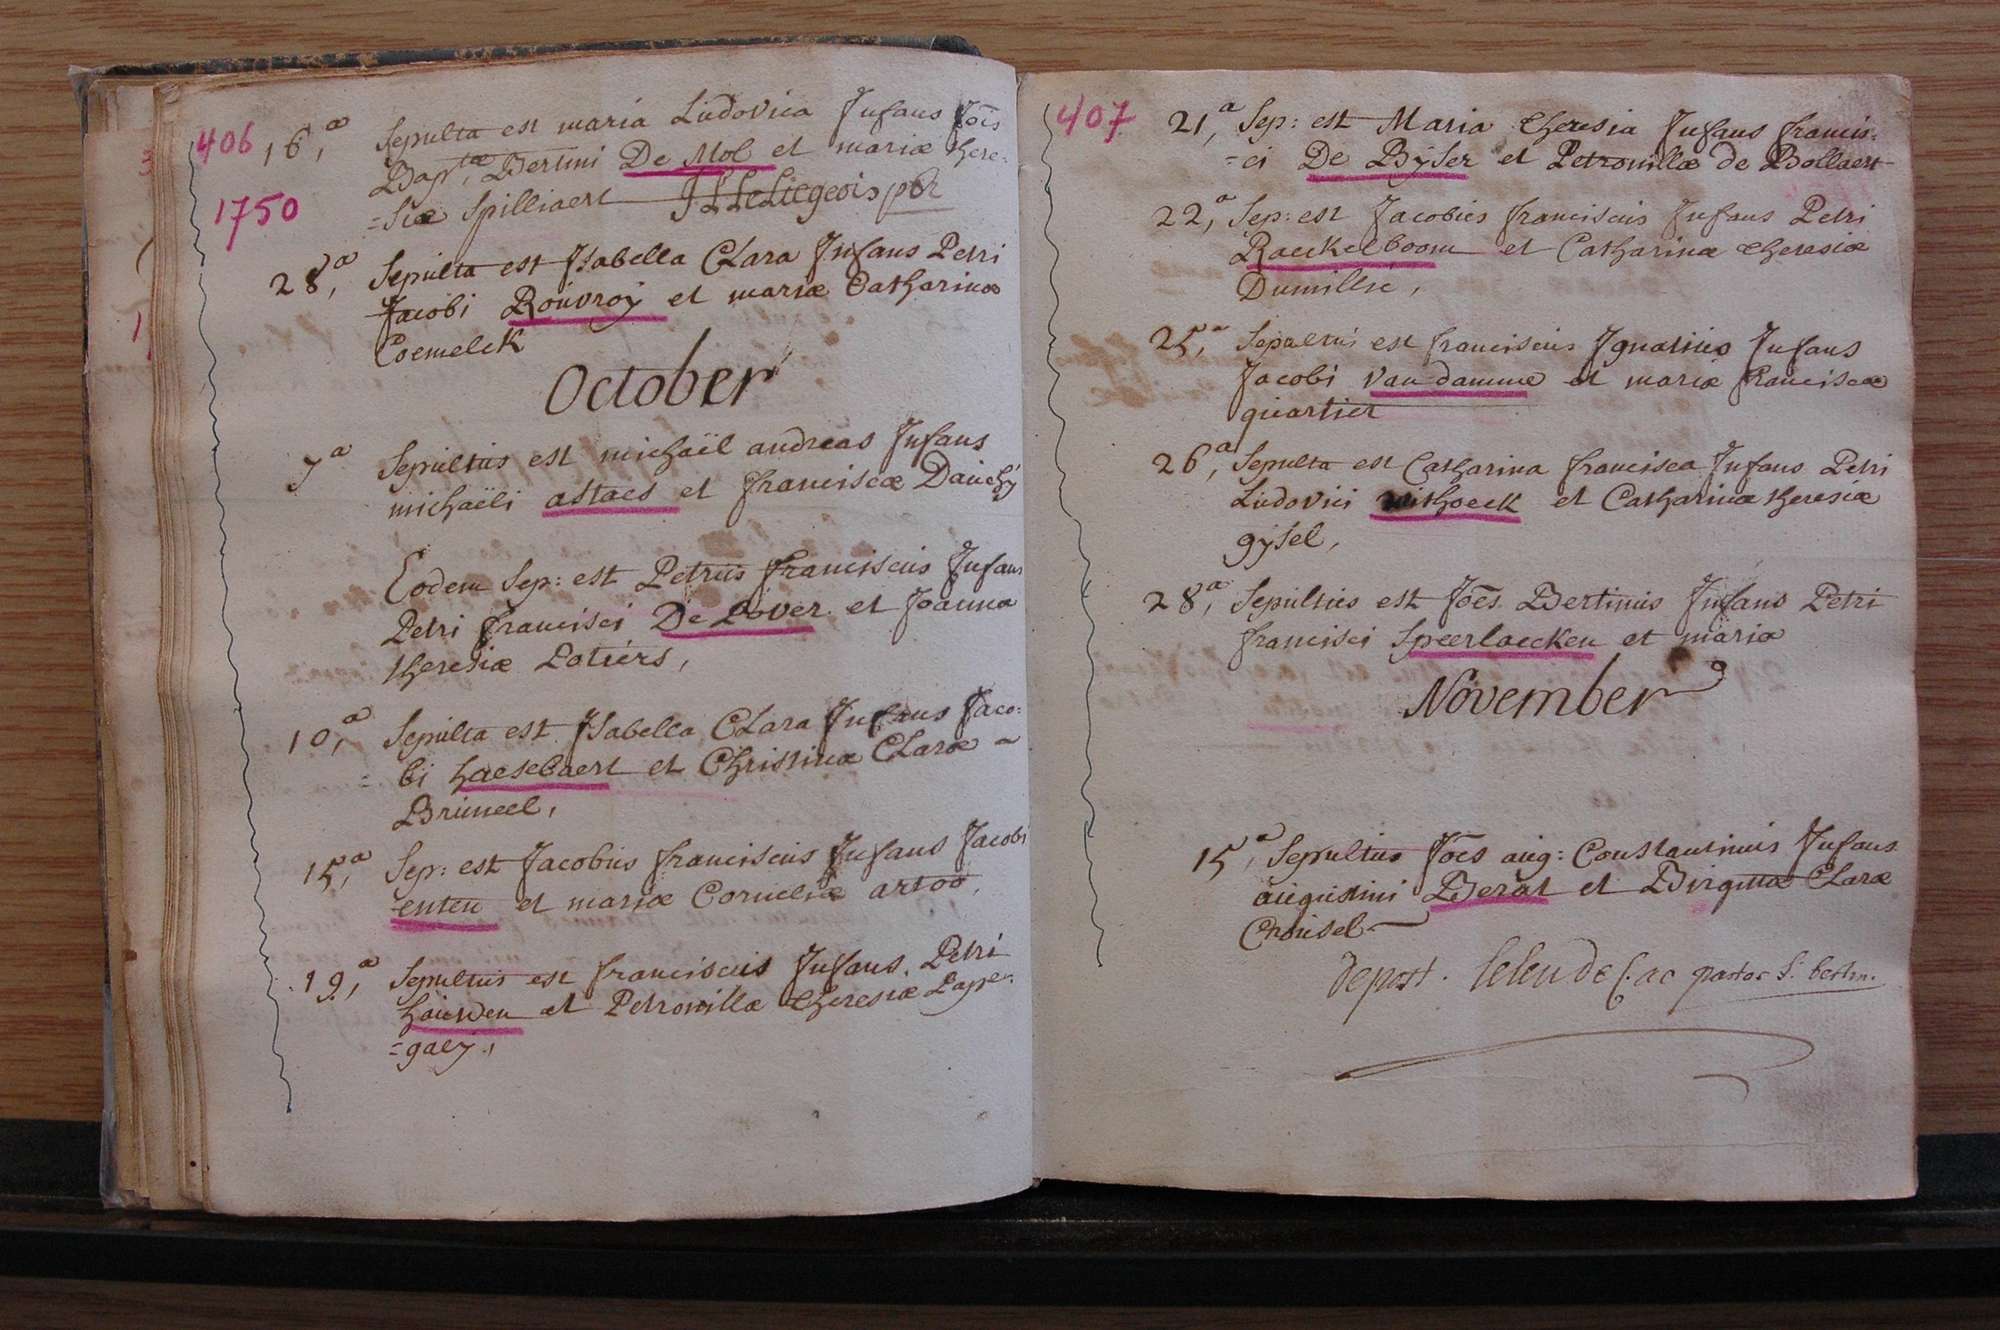 406
1750
16,a Sepulta est maria Ludovica Infans Jois
Bapt,æ Bertini De Mol et mariæ there=
=siæ Spilliaert J L LeLiegeois pbr
28,a Sepulta est Isabella Clara Infans Petri
Jacobi Rouvroy et mariæ Catharinæ
Coemelck
October
7a Sepultus est michaël andreas Infans
michaëli astaes et franciscæ Dauchy
Eodem Sep: est Petrus franciscus Infans
Petri francisci De Lover et Joanna
theresiæ Lotiers,
10,a Sepulta est Isabella Clara Infans Jaco=
=bi haesebaert et Christinæ Claræ
Bruneel,
15,a Sep: est Jacobus franciscus Infans Jacobi
enten et mariæ Corneliæ artoo,
19,a Sepultus est franciscus Infans Petri
hauwen et Petronillæ theresiæ Pape=
=gaey,
407
21,a Sep: est Maria theresia Infans francis=
=ci De Byser et Petronillæ de Bollaert
22,a Sep: est Jacobus franciscus Infans Petri
Raeckelboom et Catharinæ theresiæ
Dumillie,
25,a Sepultus est franciscus Ignatius Infans
Jacobi van damme et mariæ franciscæ
quartier
26,a Sepulta est Catharina francisca Infans Petri
Ludovici withoeck et Catharinæ theresiæ
gysel,
28,a Sepultus est Joes Bertinus Infans Petri
francisci Speerlaecken et mariæ
November
15,a Sepultus Joes aug: Constantinus Infans
augustini Berat et Birgittæ Claræ
Crousel
depost. pastor S. bertin.